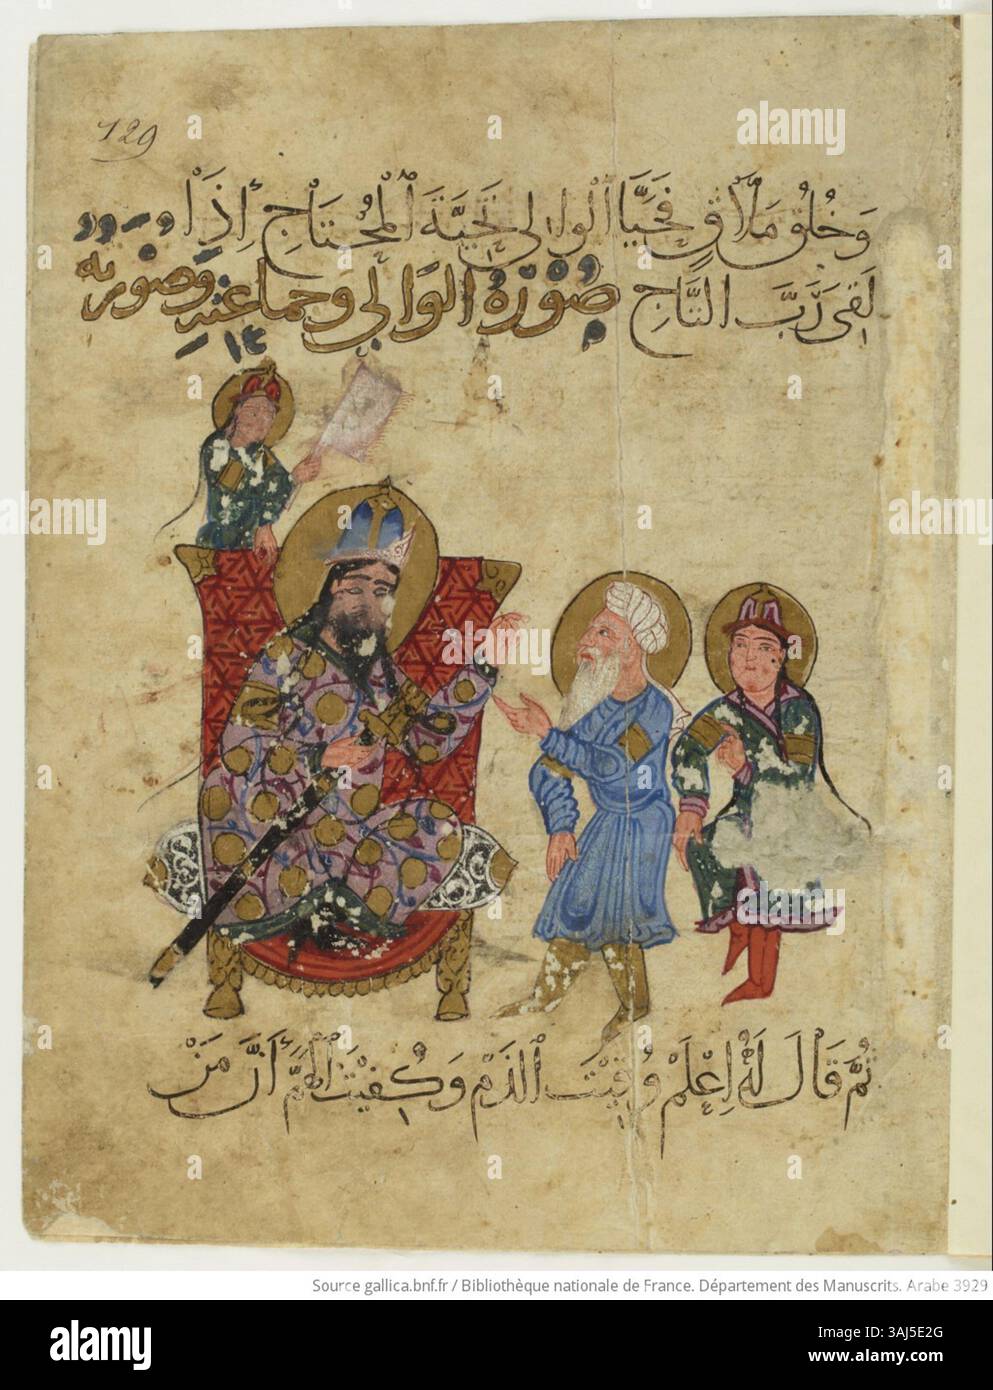 129
وَخُلُقٍ مَلَّاقٍ فَحَيَّا الوالي تَحِيَّةَ الْمُحْتَاجِ إِذَا
لَقِيَ رَبَّ التَّاجِ صُوْرَةُ الوَالي وجماعته وصورته
ثُمَّ قَالَ لَهُ اِعْلَمْ وُقِيْتَ الذَمَّ وَكُفِيْتَ الْهَمَّ أَنَّ مَنْ
Source gallica.bnf.fr / Bibliothèque nationale de France. Département des Manuscrits. Arabe 3929
alamy
Image ID: 3AJ5E2G
www.alamy.com